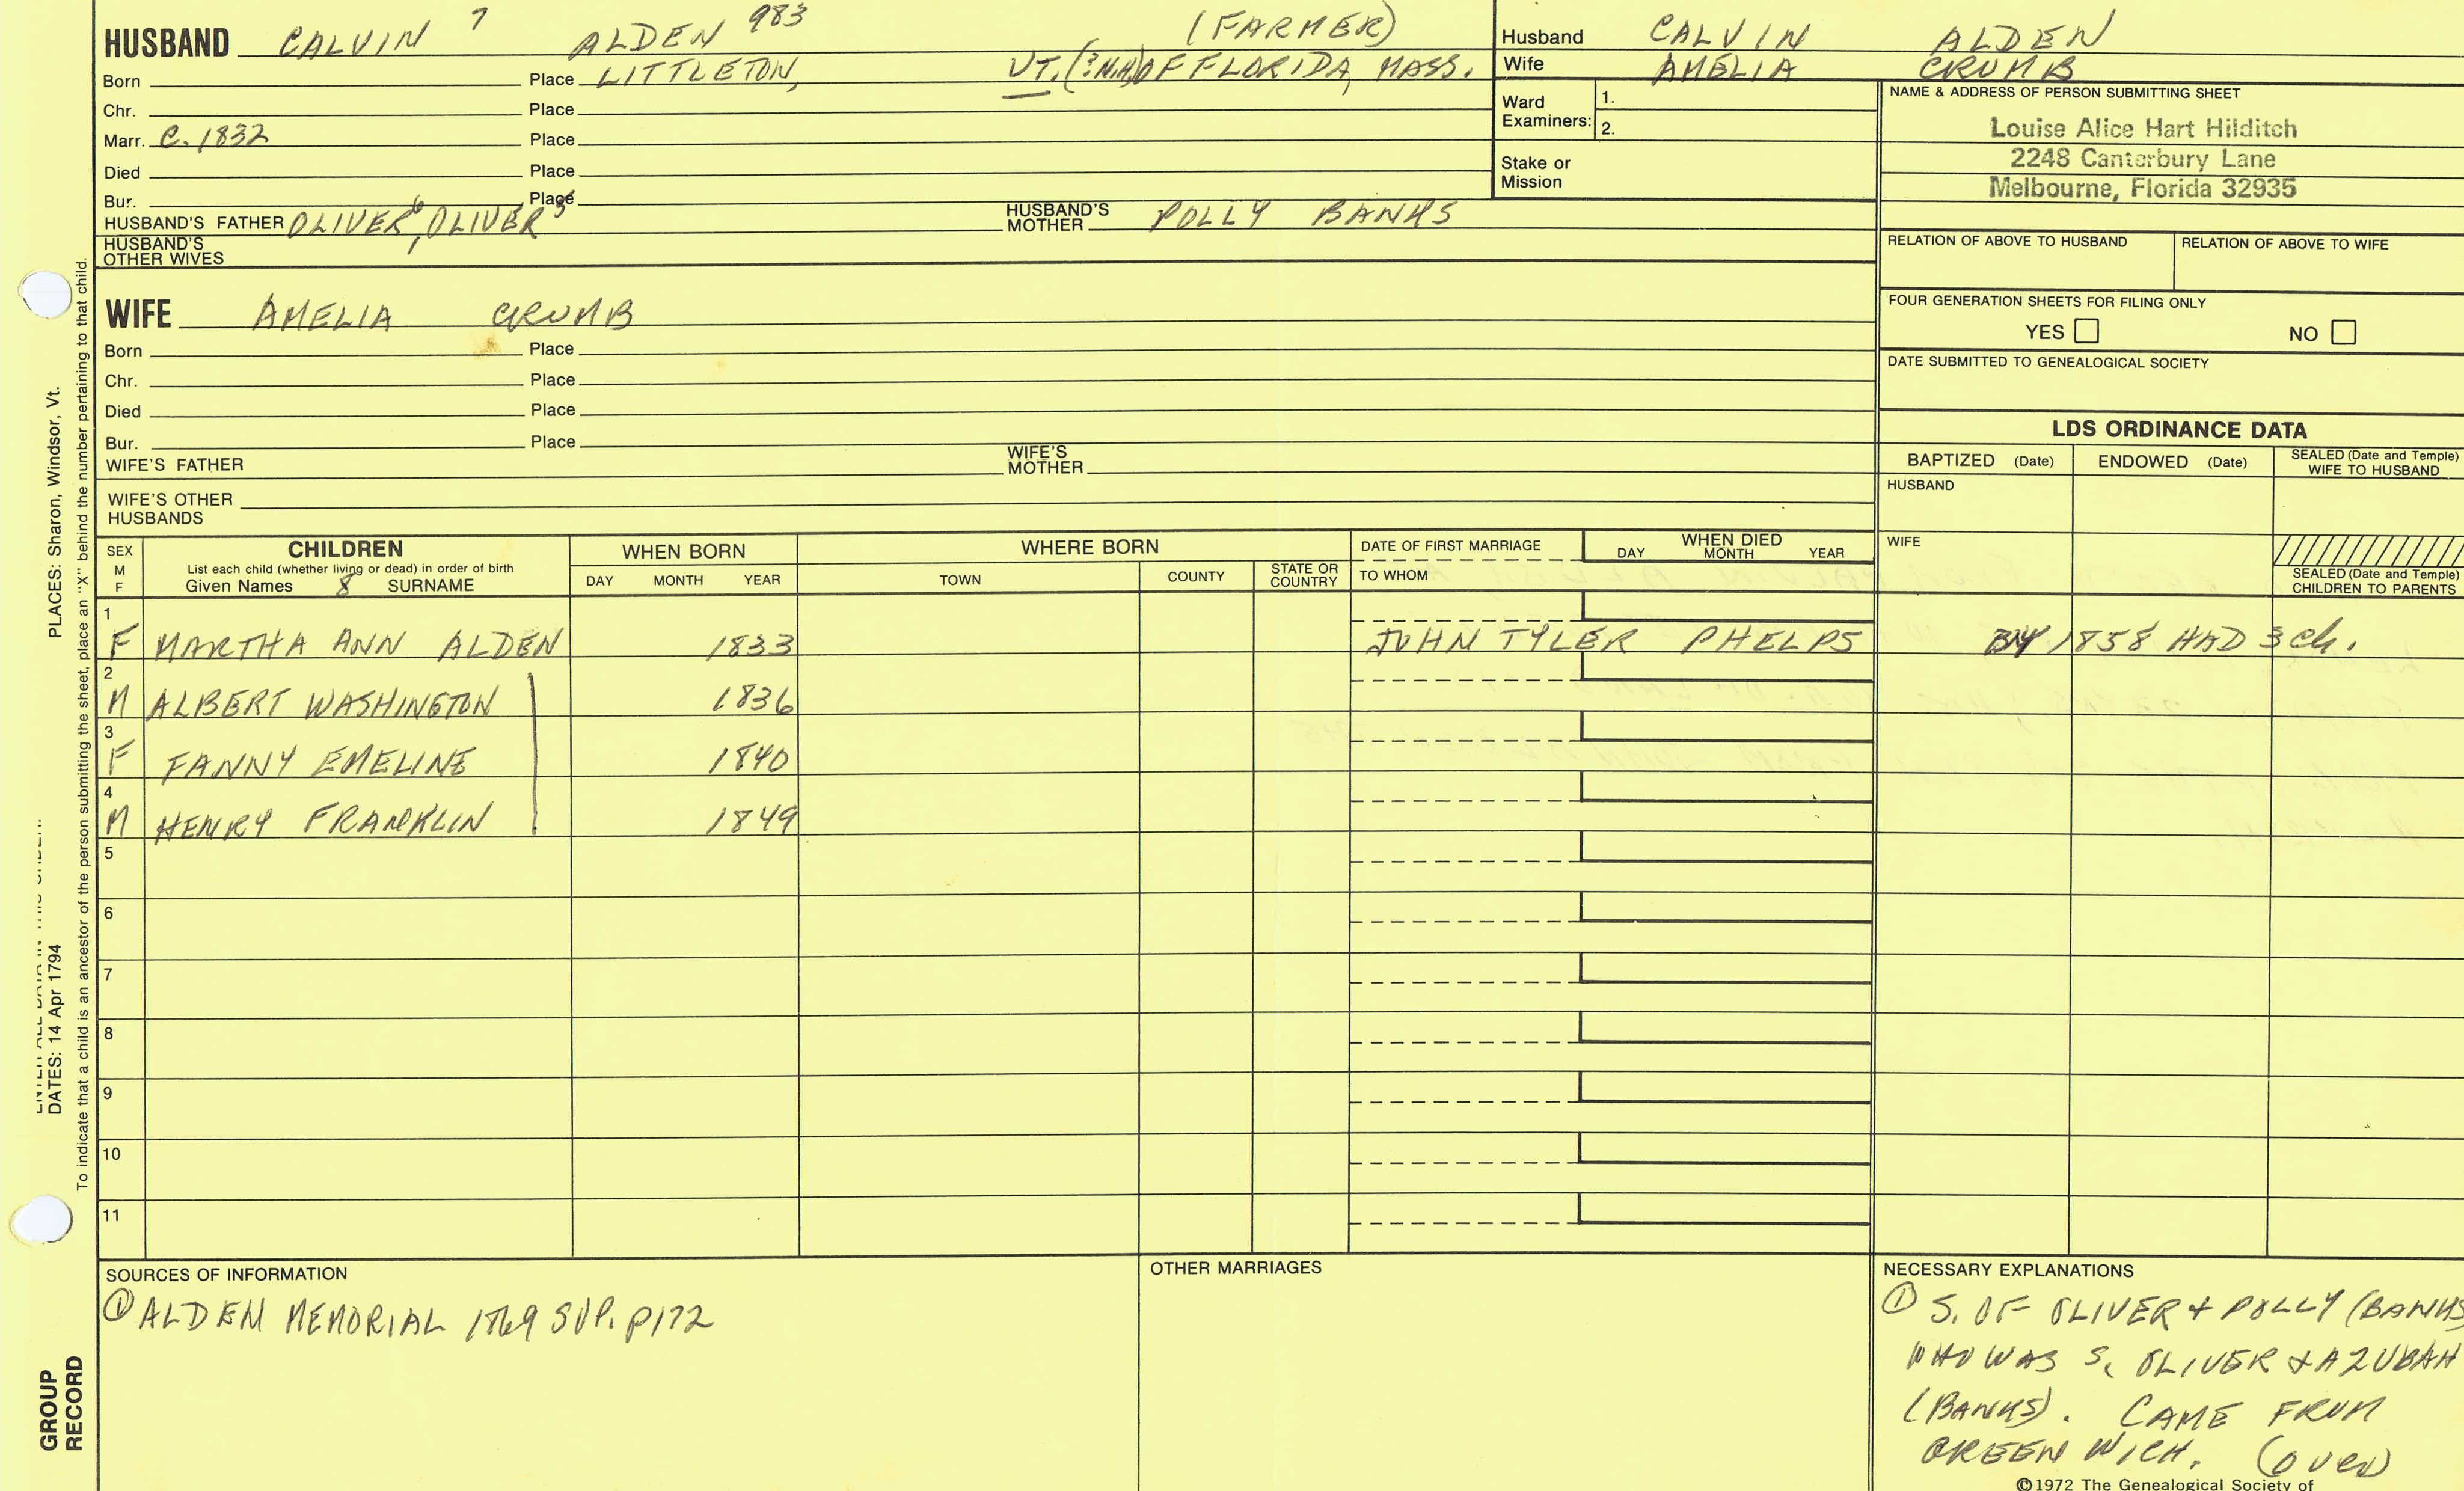 HUSBAND CALVIN 7 ALDEN 983 (FARMER)
Born Place LITTLETON, VT. (?N.H.) OF FLORIDA, MASS.
Chr. Place
Marr. C. 1832 Place
Died Place
Bur. Place
HUSBAND'S FATHER OLIVER 6, OLIVER 5 HUSBAND'S MOTHER POLLY BANKS
HUSBAND'S OTHER WIVES
Husband CALVIN ALDEN
Wife AMELIA CRUMB
Ward Examiners: 1.
2.
Stake or Mission
NAME & ADDRESS OF PERSON SUBMITTING SHEET
Louise Alice Hart Hilditch
2248 Canterbury Lane
Melbourne, Florida 32935
RELATION OF ABOVE TO HUSBAND RELATION OF ABOVE TO WIFE
FOUR GENERATION SHEETS FOR FILING ONLY
YES NO
DATE SUBMITTED TO GENEALOGICAL SOCIETY
WIFE AMELIA CRUMB
Born Place
Chr. Place
Died Place
Bur. Place
WIFE'S FATHER WIFE'S MOTHER
WIFE'S OTHER HUSBANDS
LDS ORDINANCE DATA
BAPTIZED (Date) ENDOWED (Date) SEALED (Date and Temple) WIFE TO HUSBAND
HUSBAND
WIFE
SEALED (Date and Temple) CHILDREN TO PARENTS
SEX M F
CHILDREN
List each child (whether living or dead) in order of birth
Given Names 8 SURNAME
WHEN BORN
DAY MONTH YEAR
WHERE BORN
TOWN COUNTY STATE OR COUNTRY
DATE OF FIRST MARRIAGE
TO WHOM
WHEN DIED
DAY MONTH YEAR
1
F MARTHA ANN ALDEN 1833 JOHN TYLER PHELPS BY 1858 HAD 3 Ch.
2
M ALBERT WASHINGTON 1836
3
F FANNY EMELINE 1840
4
M HENRY FRANKLIN 1849
5
6
7
8
9
10
11
SOURCES OF INFORMATION
① ALDEN MEMORIAL 1869 SUP. P172
OTHER MARRIAGES
NECESSARY EXPLANATIONS
① S. OF OLIVER & POLLY (BANKS
WHO WAS S. OLIVER & AZUBAH
(BANKS). CAME FROM
GREENWICH. (over)
©1972 The Genealogical Society of
PLACES: Sharon, Windsor, Vt.
DATES: 14 Apr 1794
To indicate that a child is an ancestor of the person submitting the sheet, place an "X" behind the number pertaining to that child.
GROUP
RECORD